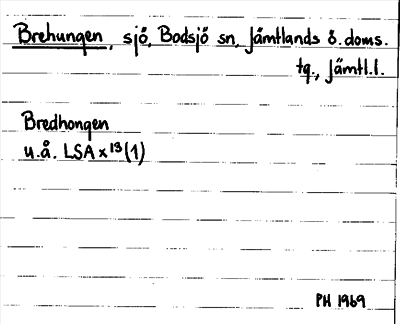 Brehungen, sjö, Bodsjö sn, Jämtlands ö. doms.
tg., Jämtl.l.
Bredhongen
u.å. LSA x 13 (1)
PH 1969